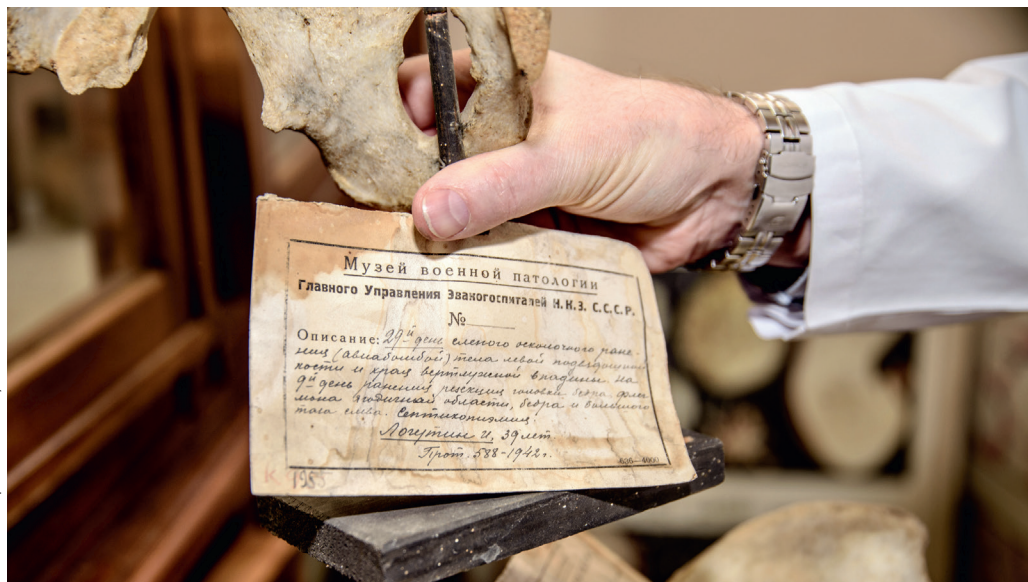 Музей военной патологии
Главного Управления Эвакогоспиталей Н.К.З. С.С.С.Р.
№
Описание: 29й день слепого осколочного ране-
ния (авиабомбой) тела левой подвздошной
кости и края вертлужной впадины. На
9й день ранения резекция головки бедра. Флег
мона ягодичной области, бедра и
таза слева. Септикопиэмия
Логутин И, 39 лет
Прот. 588-1942г.